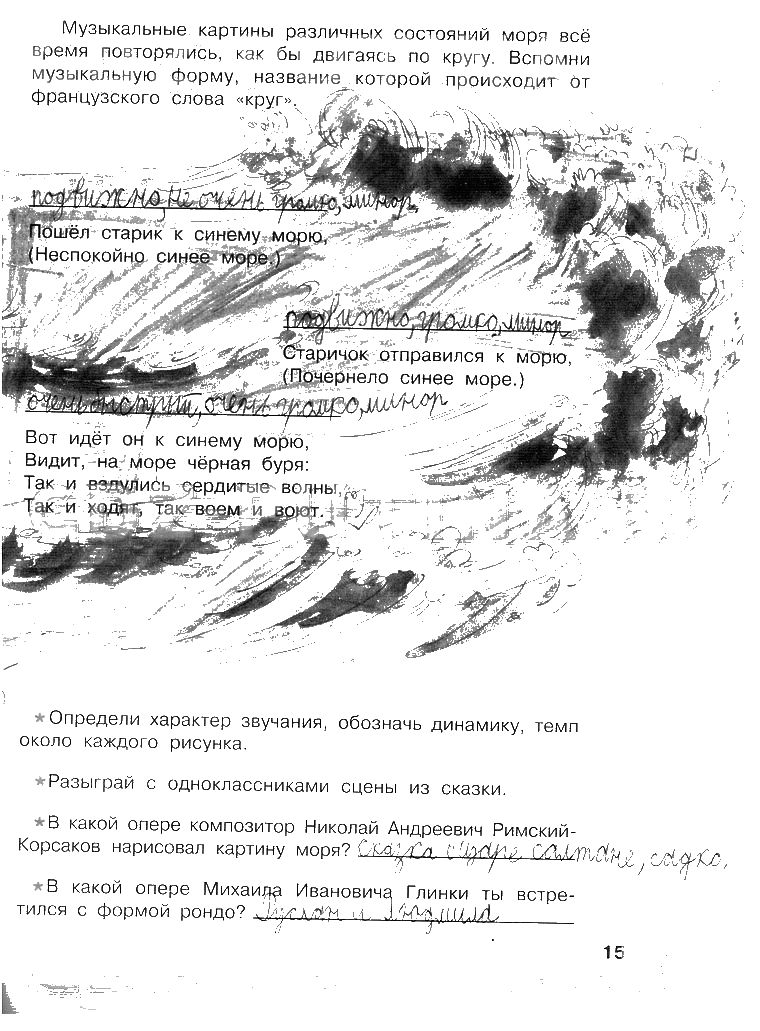 Музыкальные картины различных состояний моря всё
время повторялись, как бы двигаясь по кругу. Вспомни
музыкальную форму, название которой происходит от
французского слова «круг».
подвижно, не очень громко, минор
Пошёл старик к синему морю,
(Неспокойно синее море.)
подвижно, громко, минор
Старичок отправился к морю,
(Почернело синее море.)
очень быстрый, очень громко, минор
Вот идёт он к синему морю,
Видит, на море чёрная буря:
Так и вздулись сердитые волны,
Так и ходят, так воем и воют.
*Определи характер звучания, обозначь динамику, темп
около каждого рисунка.
*Разыграй с одноклассниками сцены из сказки.
*В какой опере композитор Николай Андреевич Римский-
Корсаков нарисовал картину моря? Сказка о царе салтане, садко.
*В какой опере Михаила Ивановича Глинки ты встре-
тился с формой рондо? Руслан и Людмила
15